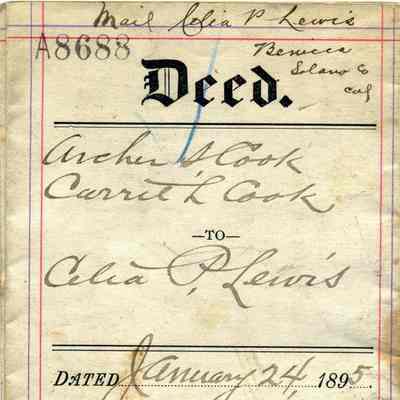 Mail Celia P Lewis
A8688
Benicia
Solano Co
Cal
Deed.
Archer S Cook
Carrit L Cook
—TO—
Celia P. Lewis
DATED January 24, 1895.